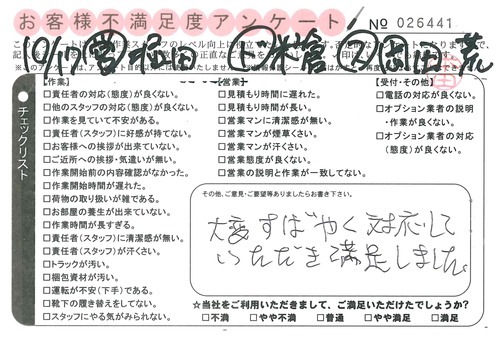 お客様不満足度アンケート
№ 026441
10/11 営 堀田 米倉
【作業】
□責任者の対応(態度)が良くない。
□他のスタッフの対応(態度)が良くない。
□作業を見ていて不安がある。
□責任者(スタッフ)に好感が持てない。
□お客様への挨拶が出来ていない。
□ご近所への挨拶・気遣いが無い。
□作業開始前の内容確認がなかった。
□作業開始時間が遅れた。
□荷物の取り扱いが雑である。
□お部屋の養生が出来ていない。
□作業時間が長すぎる。
□責任者(スタッフ)に清潔感が無い。
□責任者(スタッフ)が汗くさい。
□トラックが汚い。
□梱包資材が汚い。
□運転が不安(下手)である。
□靴下の履き替えをしてない。
□スタッフにやる気がみられない。
【営業】
□見積もりに遅れた。
□見積もり時間が長い。
□営業マンに清潔感が無い。
□営業マンが煙草くさい。
□営業マンが汗くさい。
□営業態度が良くない。
□営業の説明と作業が一致してない。
【受付・その他】
□電話の対応が良くない。
□オプション業者の説明
・作業が良くない。
□オプション業者の対応
(態度)が良くない。
チェックリスト
その他、ご意見・ご要望等ありましたらお書き下さい。
大変すばやく対応して
いただき満足しました。
☆当社をご利用いただきまして、ご満足いただけたでしょうか?
□不満 □やや不満 □普通 □やや満足 □満足